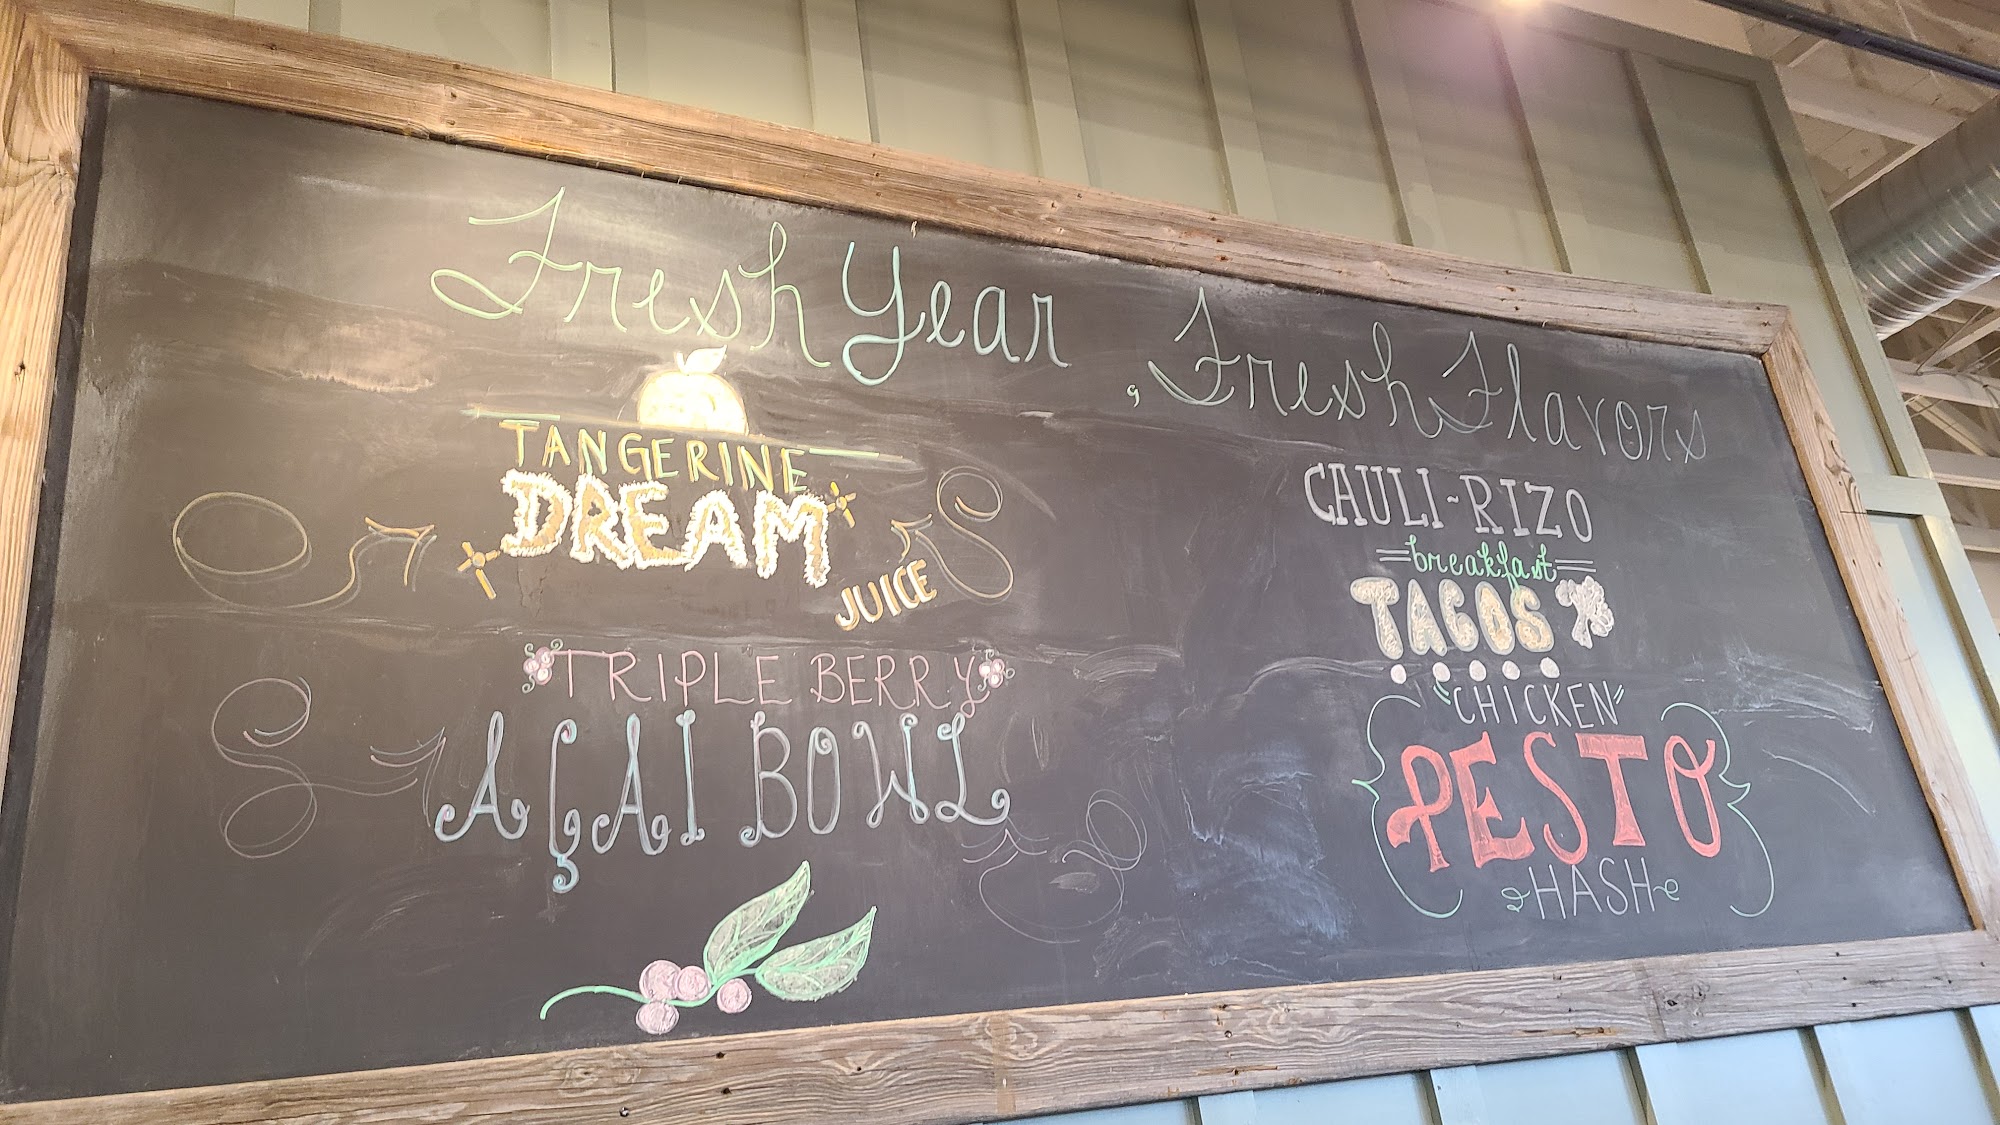 Fresh Year, Fresh Flavors
TANGERINE
DREAM
JUICE
TRIPLE BERRY
AÇAI BOWL
CAULI-RIZO
breakfast
TACOS
"CHICKEN"
PESTO
HASH